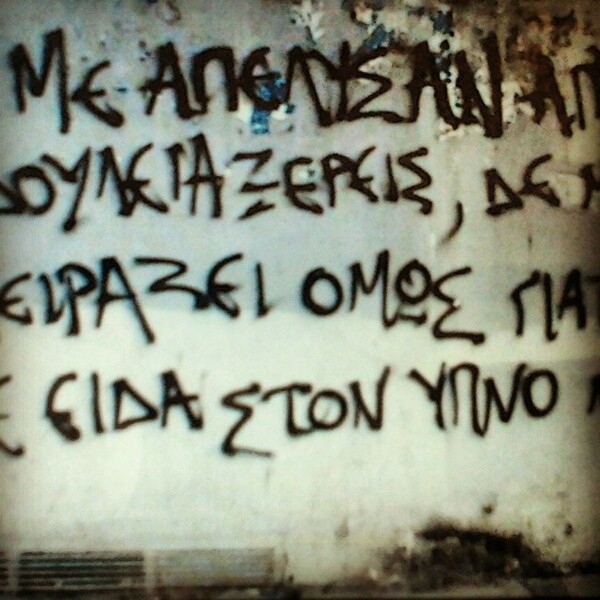 ΜΕ ΑΠΕΛΥΣΑΝ ΑΠ
ΔΟΥΛΕΙΑ ΞΕΡΕΙΣ, ΔΕ Μ
ΕΙΡΑΖΕΙ ΟΜΩΣ ΓΙΑΤ
Ε ΕΙΔΑ ΣΤΟΝ ΥΠΝΟ Μ